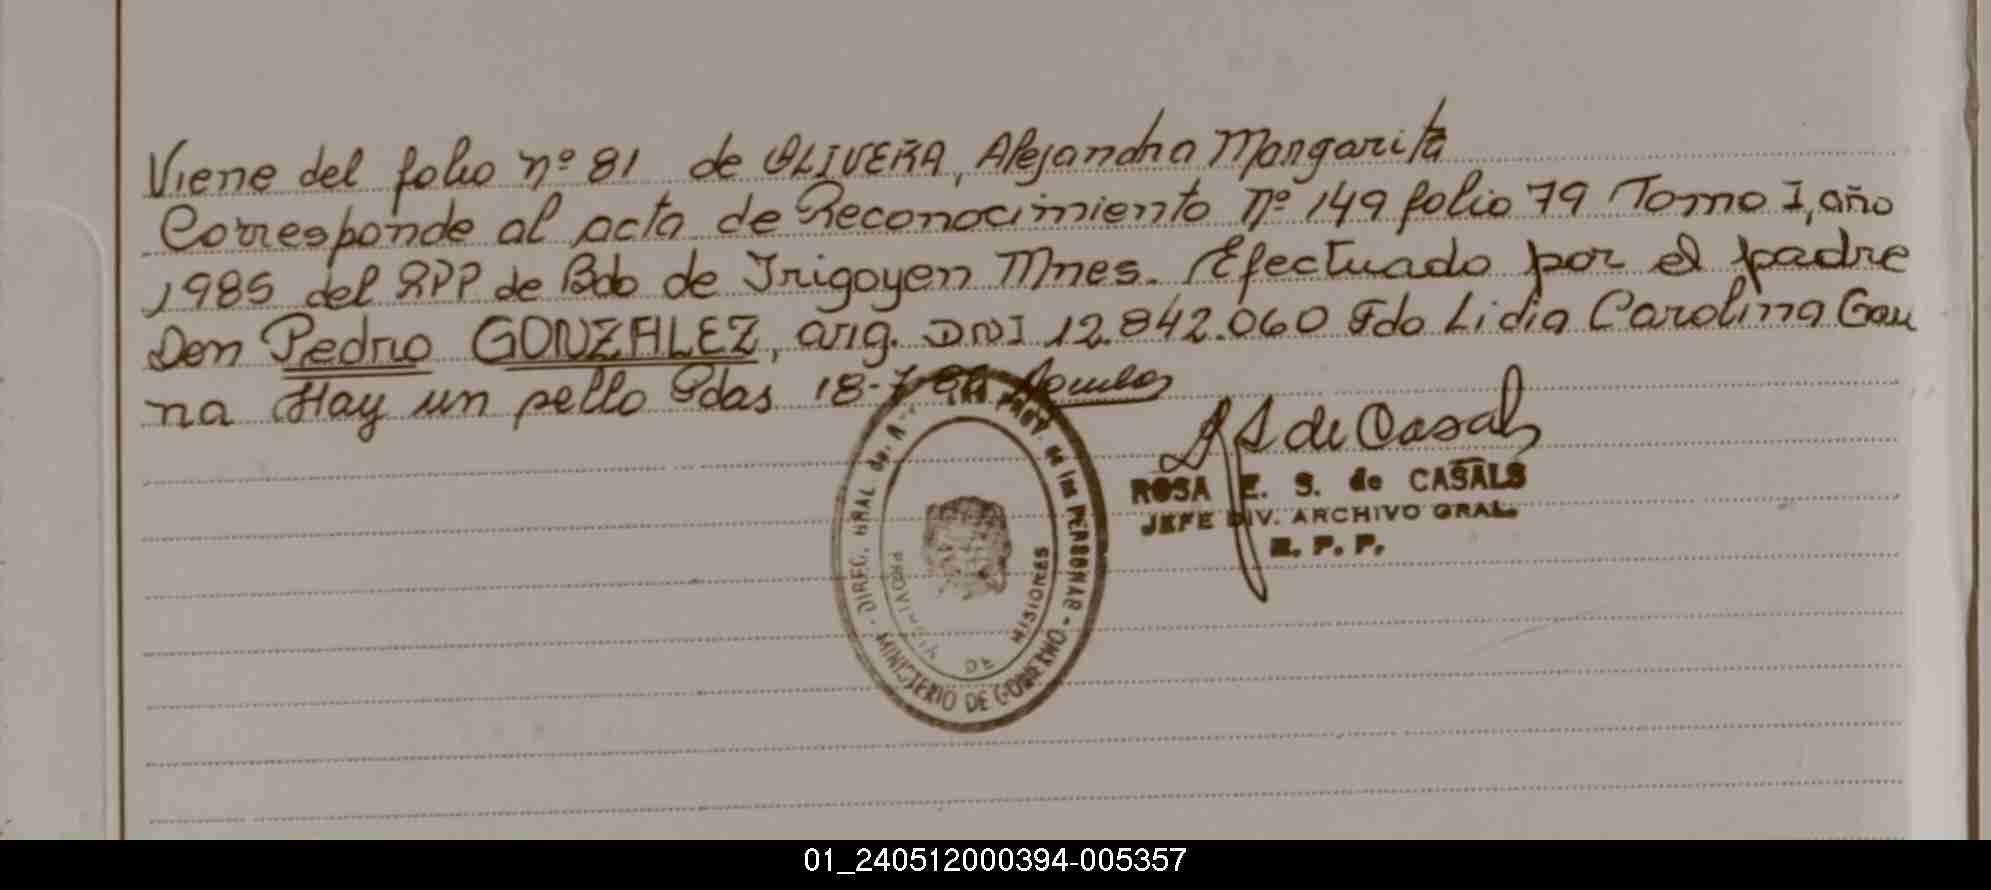 Viene del folio nº 81 de OLIVERA, Alejandra Margarita
Corresponde al acta de Reconocimiento Nº 149 folio 79 Tomo I, año
1985 del RPP de Bdo de Irigoyen Mnes. Efectuado por el padre
Don Pedro GONZALEZ, arg. DNI 12.842.060 Fdo Lidia Carolina Gau
na Hay un sello Pdas 18-7
DIREC. GRAL de PROV. de las PERSONAS
MINISTERIO DE GOBIERNO
PROVINCIA DE MISIONES
R S de Casals
ROSA E. S. de CASALS
JEFE DIV. ARCHIVO GRAL.
R. P. P.
01_240512000394-005357